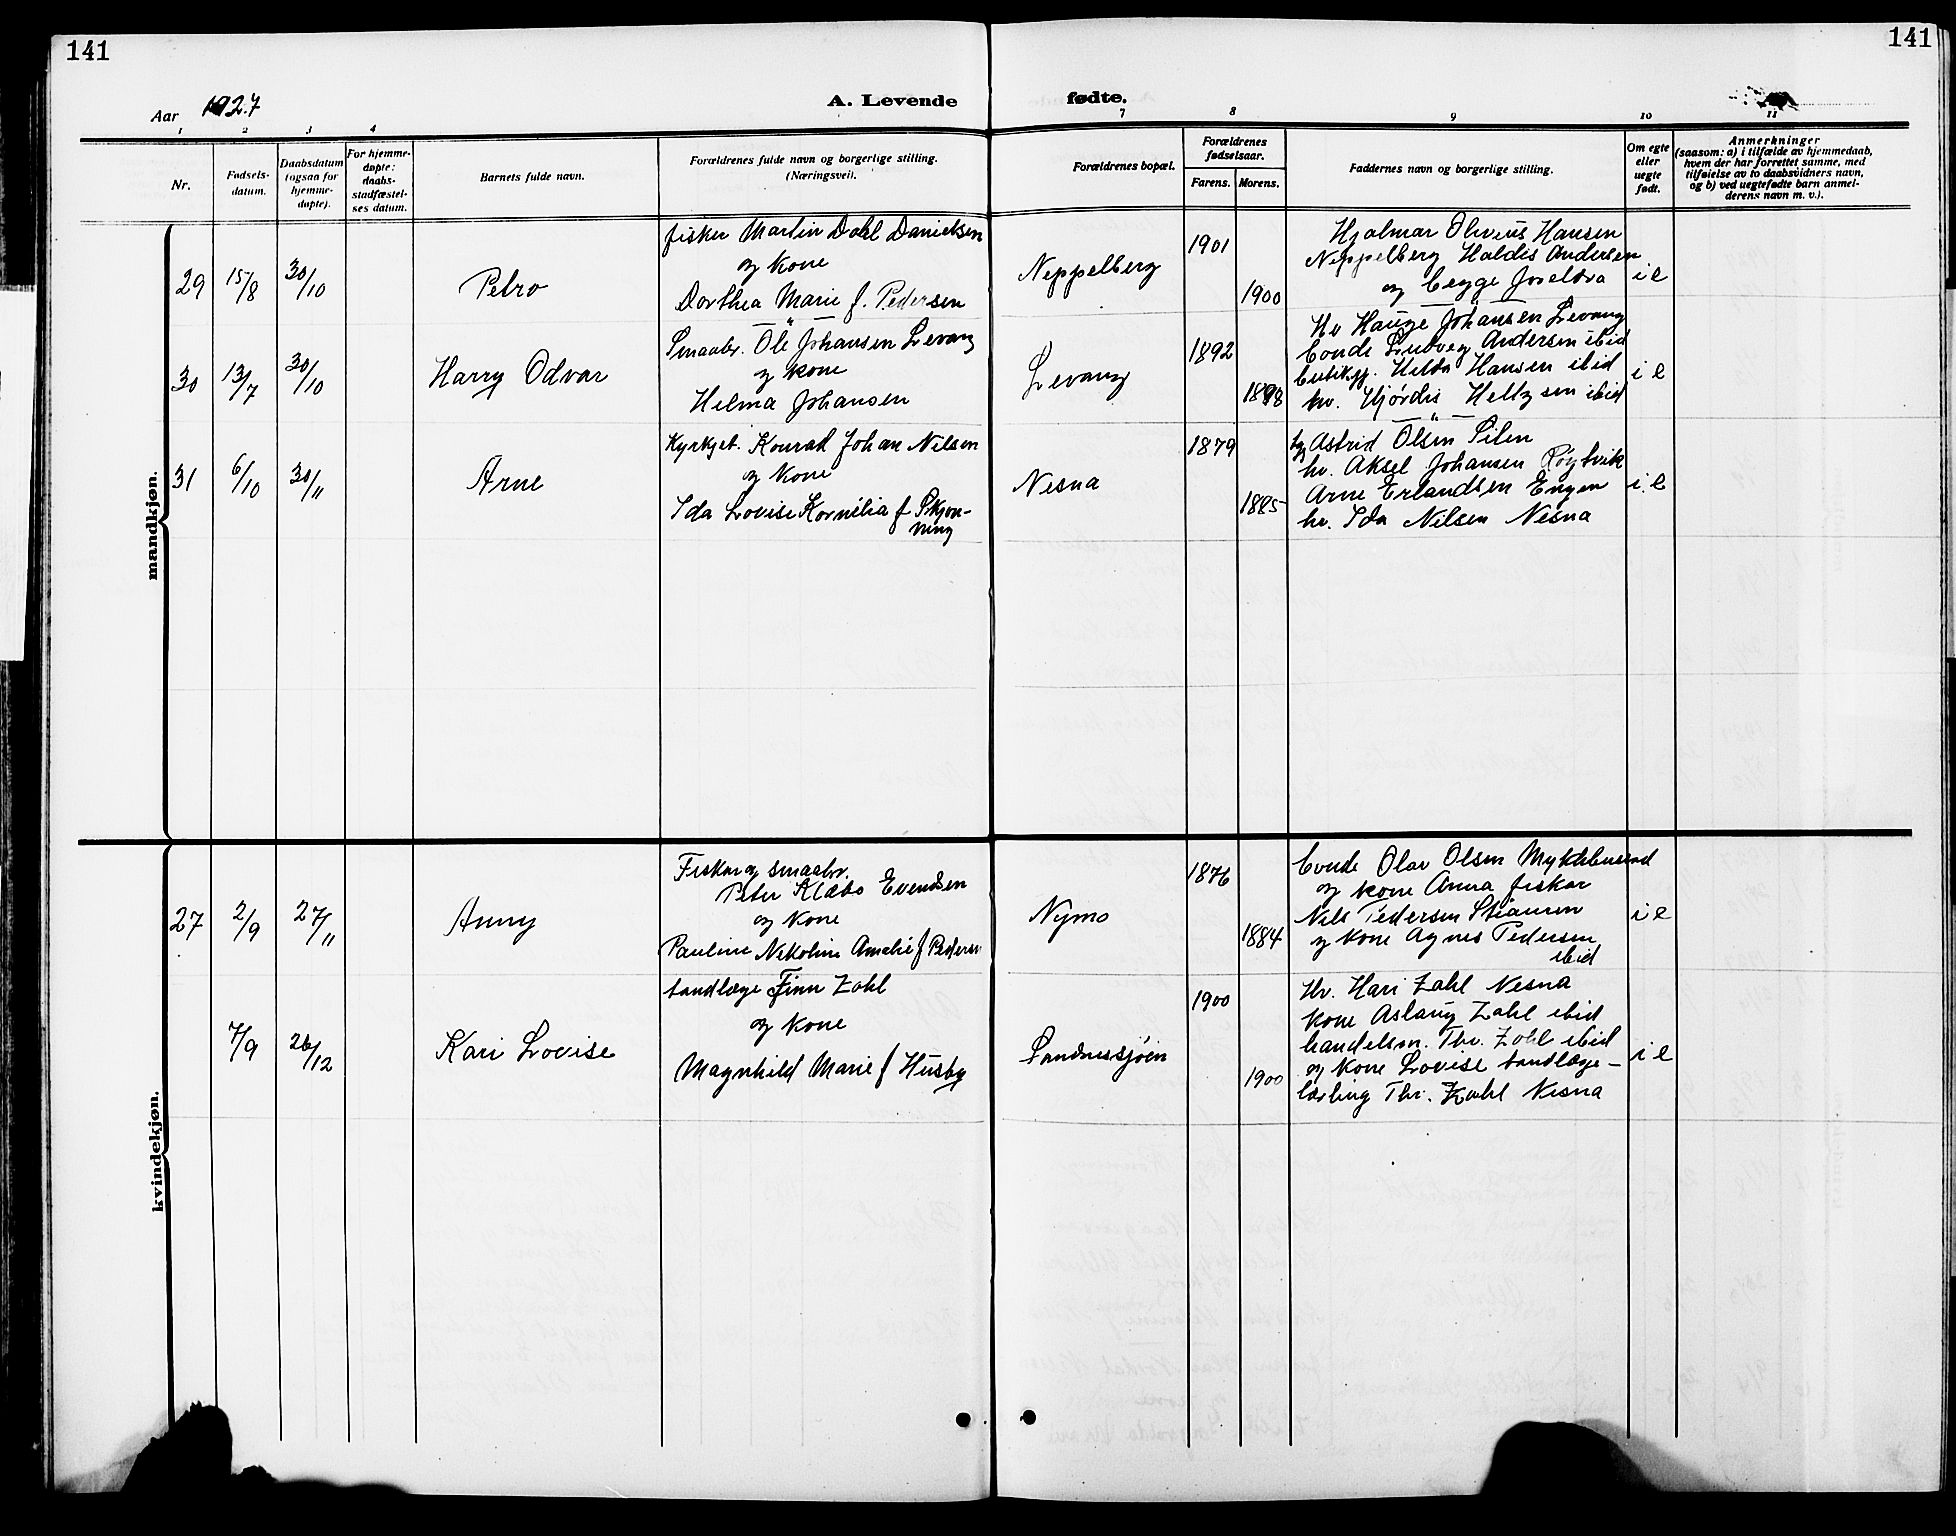 141
141
Aar 1927
A. Levende fødte.
1 2 3 4 7 8 9 10 11
Nr.
Fødsels-
datum.
Daabsdatum
(ogsaa for
hjemme-
døpte).
For hjemme-
døpte:
daabs-
stadfæstel-
ses datum.
Barnets fulde navn.
Forældrenes fulde navn og borgerlige stilling.
(Næringsvei).
Forældrenes bopæl.
Forældrenes
fødselsaar.
Farens. Morens.
Faddernes navn og borgerlige stilling.
Om egte
eller
uegte
født.
Anmerkninger
(saasom: a) i tilfælde av hjemmedaab,
hvem der har forrettet samme, med
tilføielse av to daabsvidners navn,
og b) ved uegtefødte barn anmel-
derens navn m. v.).
mandkjøn.
29 15/8 30/10 Petro
fisker Martin Dahl Danielsen
og kone
Dorthea Marie f. Pedersen
Neppelberg
1901
1900
Hjalmar Olivius Hansen
Neppelberg Haldis Andersen
og begge forældra
i e
30 13/7 30/10 Harry Odvar
Smaabr. Ole Johansen Levang
og kone
Helma Johansen
Levang
1892
Hv Hauge Johansen Levang
bonde Ludvig Andersen ibid
Hilda Hansen ibid
hv. Hjørdis Heltzsen ibid
i e
31 6/10 30/11 Arne
Kyrkjet. Konrad Johan Nilsen
og kone
Ida Lovise Kornelia f Skjon-
ning
Nesna
1879
1885
Astrid Olsen Silen
hv. Aksel Johansen Røytvik
Arne Erlandsen Engen
hv. Ida Nilsen Nesna
i e
kvindekjøn.
27 2/9 27/11 Anny
Fiskar og smaabr.
Peter Klæbo Evendsen
og kone
Pauline Nikoline Amalie f Pedersen
Nymo
1876
1884
bonde Olav Olsen Myklebustad
og kone Anna fiskar
Nils Pedersen
og kone Agnes Pedersen
ibid
i e
7/9 26/12 Kari Lovise
tandlæge Finn Zahl
og kone
Magnhild Marie f Husby
Sandnessjøen
1900
1900
Hv. Hari Zahl Nesna
kone Aslaug Zahl ibid
handelsm. Thv. Zahl ibid
og kone Lovise tandlæge-
lærling Thr. Zahl Nesna
i e